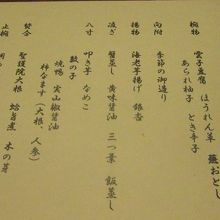 椀物
雲子豆腐 ほうれん草
あられ柚子 とき辛子
蓮おとし
向附
季節の御造り
揚物
海老芋揚げ 銀杏
凌ぎ
蟹蒸し 黄味醤油 三つ葉 飯蒸し
八寸
叩き芋 なめこ
数の子
焼鴨 実山椒醤油
柿なます(大根、人参)
焚合
聖護院大根 蛤旨煮 木の芽
止椀